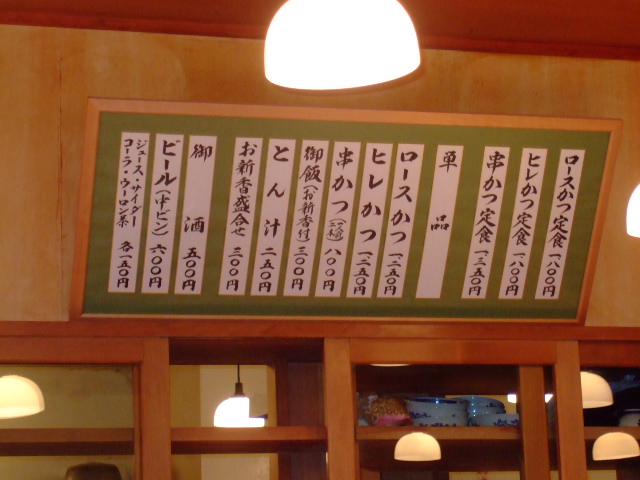 ロースかつ定食 一、八〇〇円
ヒレかつ定食 一、八〇〇円
串かつ定食 一、三五〇円
単品
ロースかつ 一、二五〇円
ヒレかつ 一、二五〇円
串かつ 八〇〇円
御飯(お新香付) 三〇〇円
とん汁 二五〇円
お新香盛合せ 三〇〇円
御酒 五〇〇円
ビール(中ビン) 六〇〇円
ジュース・サイダー
コーラ・ウーロン茶 各一五〇円